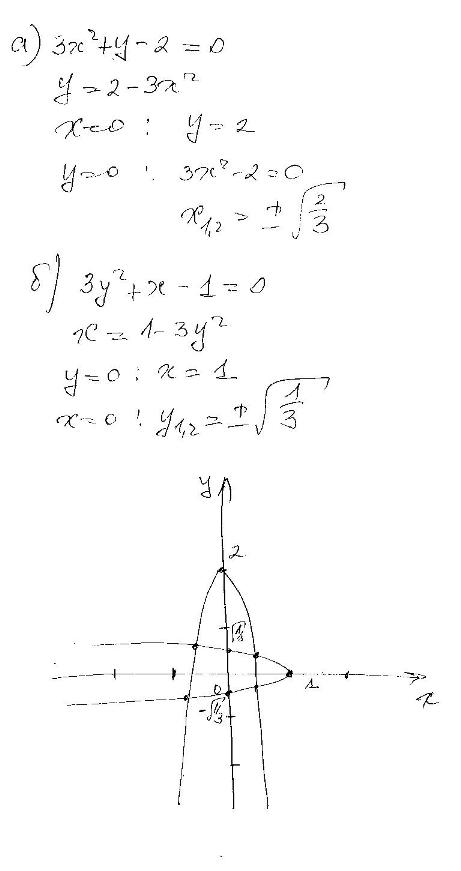 а) 3x²+y-2=0
y=2-3x²
x=0 : y=2
y=0 : 3x²-2=0
x₁,₂=±√(2/3)
б) 3y²+x-1=0
x=1-3y²
y=0 : x=1
x=0 : y₁,₂=±√(1/3)
y
2
√(1/3)
0
1
x
-√(1/3)